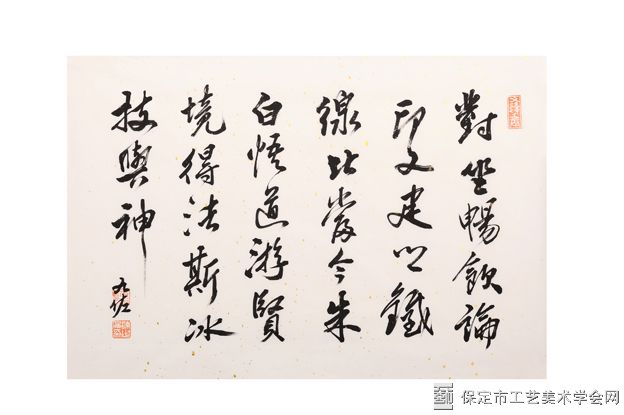 對坐暢飲論
印文建鐵
線比今朱
白悟道游賢
境得法斯冰
技與神
保定市工艺美术学会网